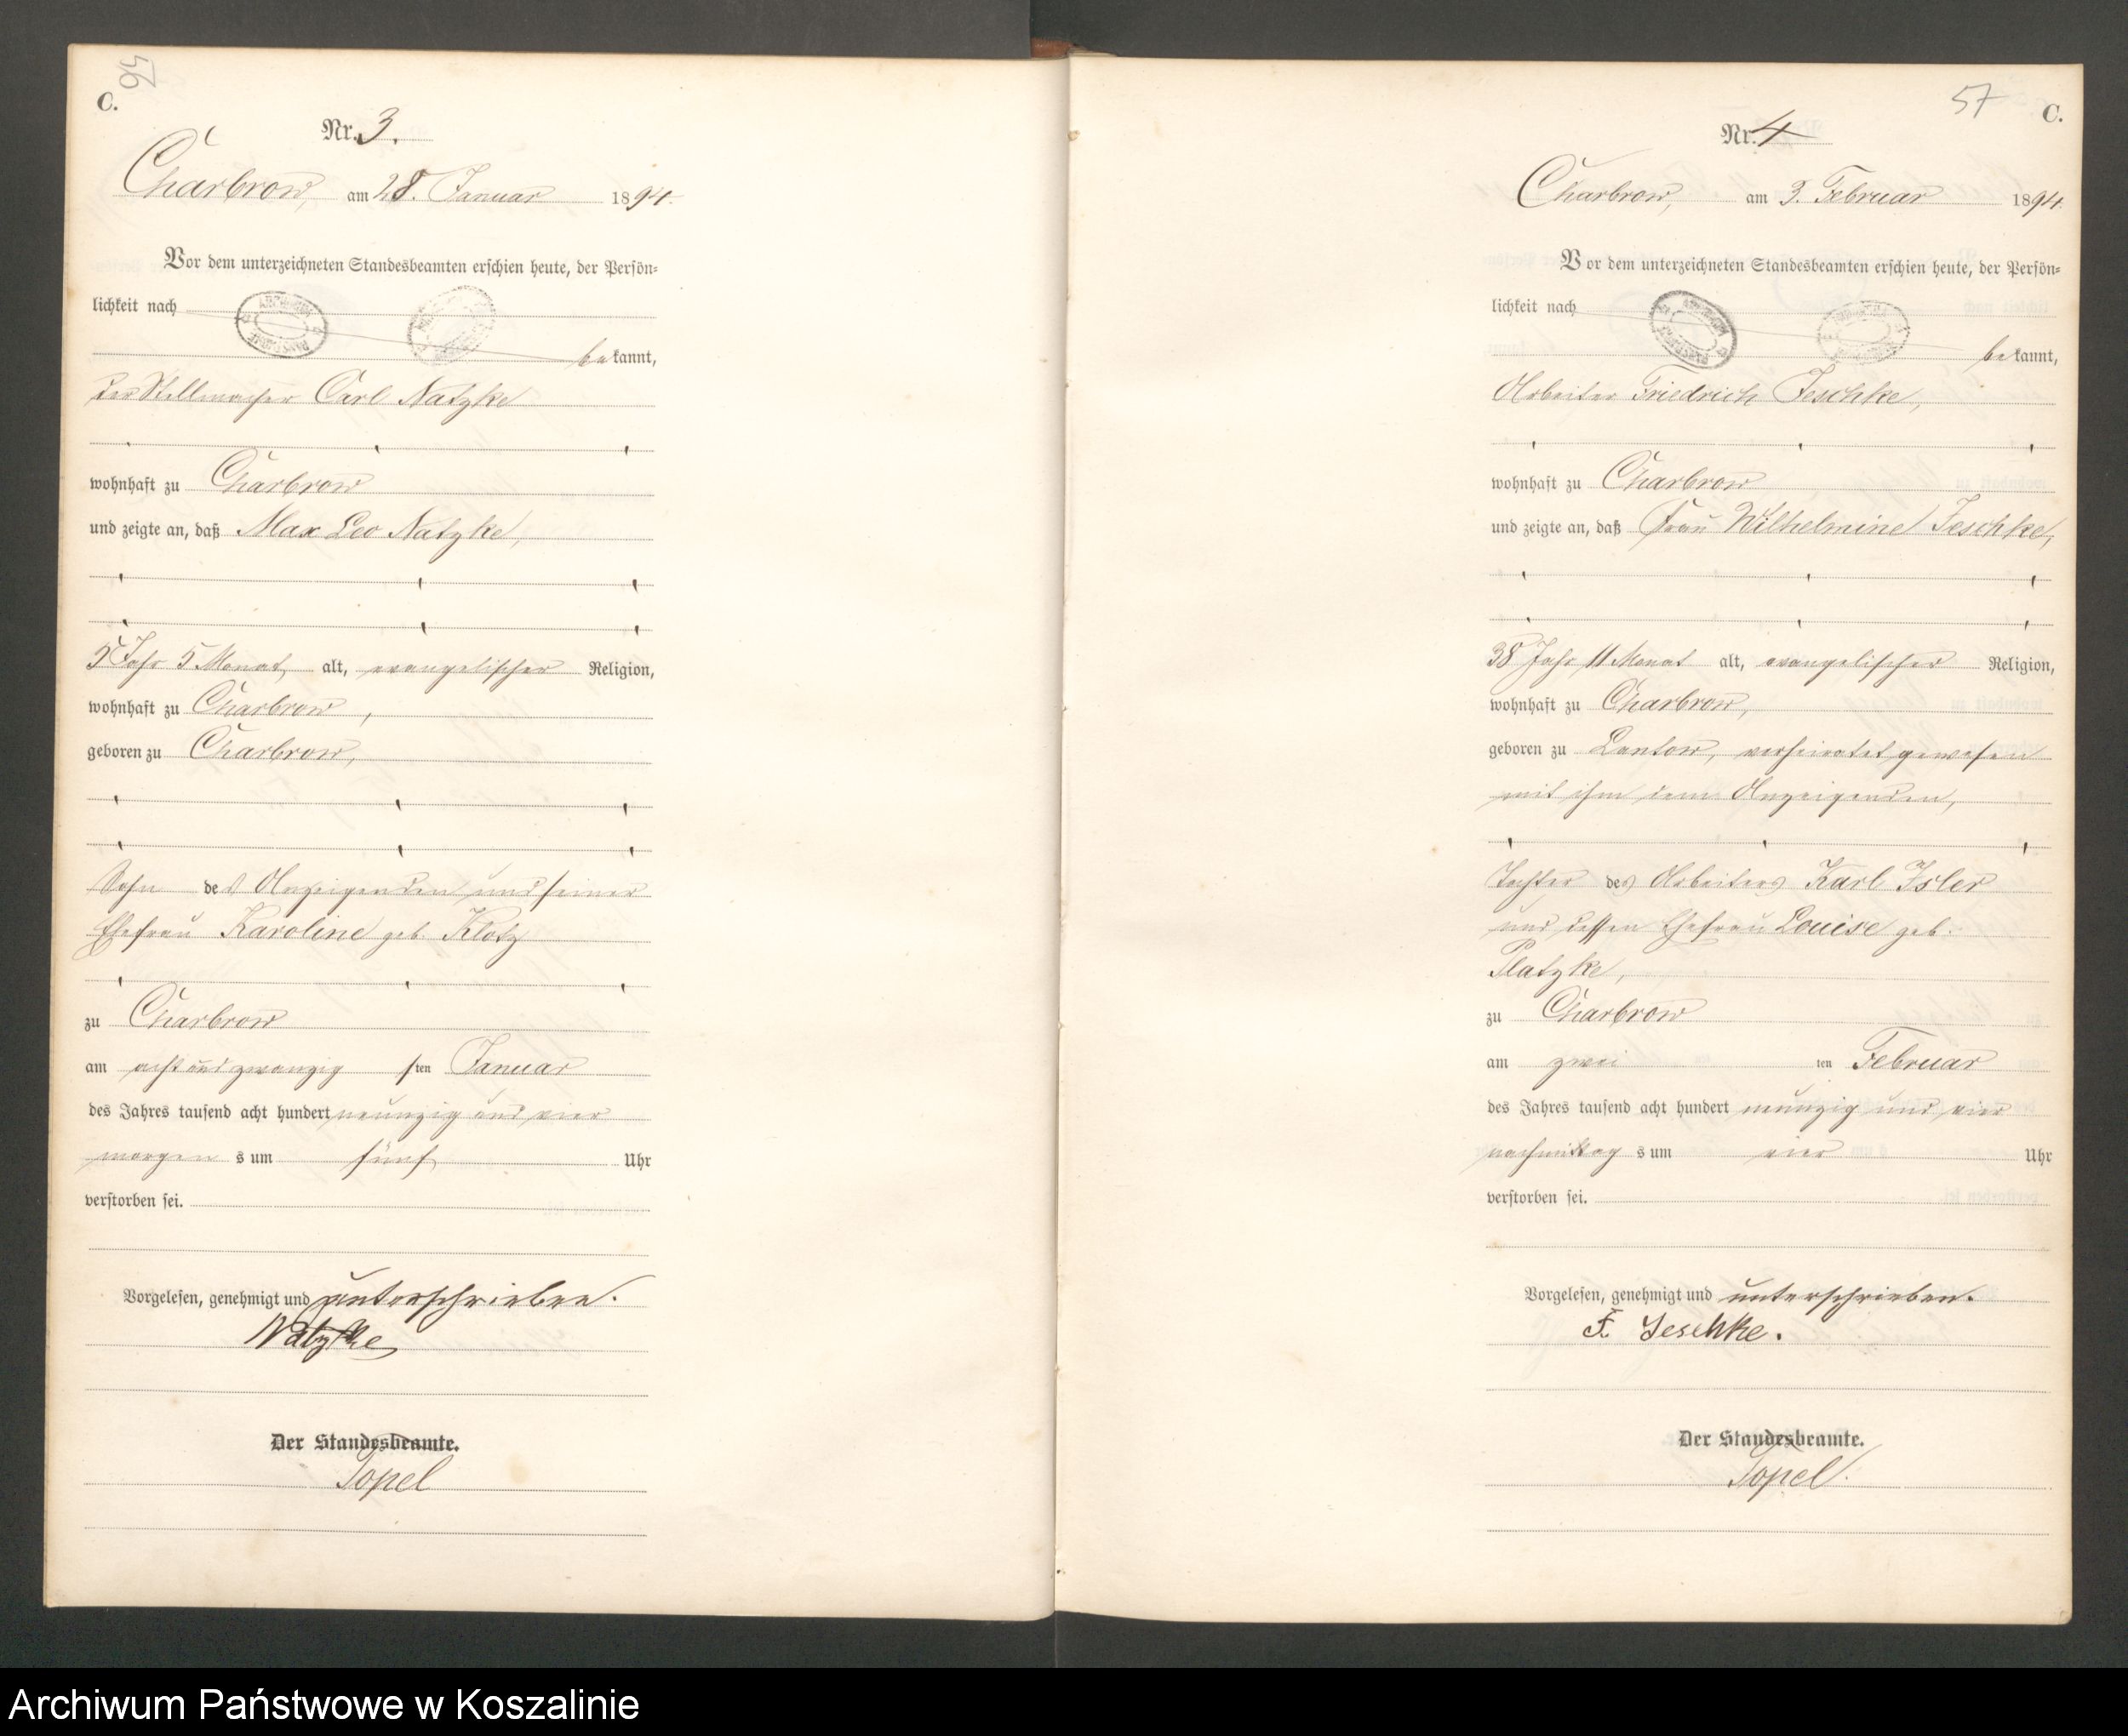 56
C.
Nr. 3.
Charbrow, am 28. Januar 1894.
Vor dem unterzeichneten Standesbeamten erschien heute, der Persön=
lichkeit nach
bekannt,
der Stellmacher Carl Natzke
wohnhaft zu Charbrow
und zeigte an, daß Max Leo Natzke,
5 Jahr 5 Monat alt, evangelischer Religion,
wohnhaft zu Charbrow,
geboren zu Charbrow,
Sohn des Anzeigenden und seiner
Ehefrau Karoline geb. Klotz
zu Charbrow
am acht und zwanzigsten Januar
des Jahres tausend acht hundert neunzig und vier
morgens um fünf Uhr
verstorben sei.
Vorgelesen, genehmigt und unterschrieben.
Natzke
Der Standesbeamte.
Topel
57
C.
Nr. 4
Charbrow, am 3. Februar 1894.
Vor dem unterzeichneten Standesbeamten erschien heute, der Persön=
lichkeit nach
bekannt,
Arbeiter Friedrich Jeschke,
wohnhaft zu Charbrow
und zeigte an, daß Frau Wilhelmine Jeschke,
38 Jahr 11 Monat alt, evangelischer Religion,
wohnhaft zu Charbrow,
geboren zu Lantow, verheiratet gewesen
mit ihm dem Anzeigenden,
Tochter des Arbeiters Karl Isler
und dessen Ehefrau Louise geb.
Platzke,
zu Charbrow
am zweiten Februar
des Jahres tausend acht hundert neunzig und vier
nachmittags um vier Uhr
verstorben sei.
Vorgelesen, genehmigt und unterschrieben.
F. Jeschke.
Der Standesbeamte.
Topel.
Archiwum Państwowe w Koszalinie